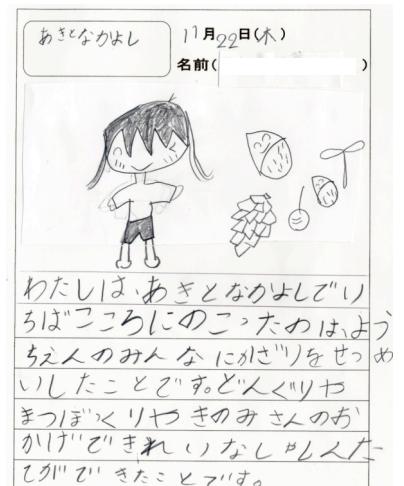 あきとなかよし
11月22日(木)
名前( )
わたしは、あきとなかよしでい
ちばこころにのこったのは、よう
ちえんのみんなにかざりをせつめ
いしたことです。どんぐりや
まつぼっくりやきのみさんのお
かげできれいなしゃしんた
てができたことです。